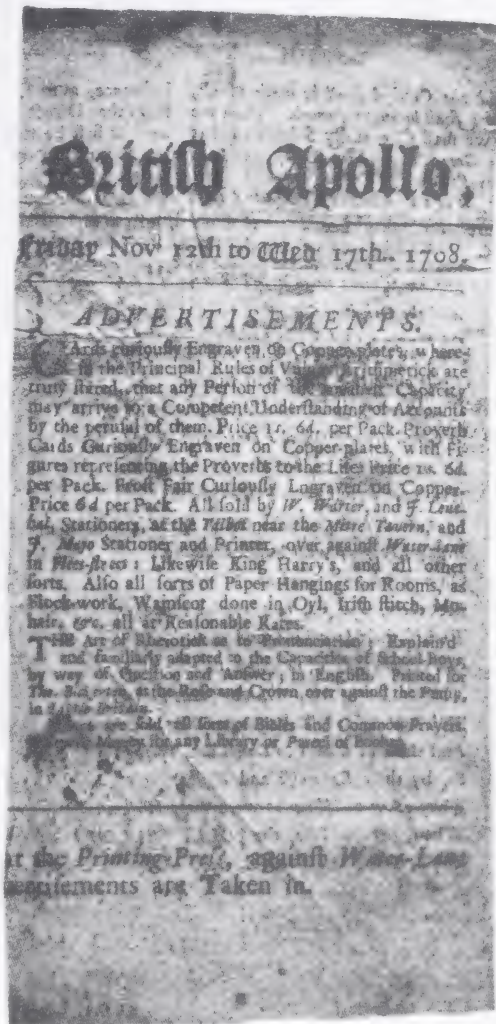 British Apollo,
Friday Nov 12th to Wed 17th. 1708.
ADVERTISEMENTS.
CArds curiously Engraven on Copper-plates, where-
in the Principal Rules of Arithmetick are
truly stated, that any Person of the Capacity
may arrive to a Competent Understanding of Accounts
by the perusal of them. Price 1 s. 6d. per Pack. Proverb
Cards Curiously Engraven on Copper-plates, with Fi-
gures representing the Proverbs to the Life: Price 1s. 6d.
per Pack. Frost Fair Curiously Engraven on Copper.
Price 6 d per Pack. All sold by W. Warter, and J.
Stationers, at the Talbot near the Mitre Tavern, and
J. Mayo Stationer and Printer, over against Water-Lane
in Fleet-street: Likewise King Harry's, and all other
sorts. Also all sorts of Paper Hangings for Rooms, as
Flock-work, Wainscot done in Oyl, Irish stitch, Mo-
hair, &c. all at Reasonable Rates.
THE Art of Rhetorick as to Pronunciation; Explain'd
and familiarly adapted to the Capacities of School-boys,
by way of Question and Answer; in English. Printed for
at the Rose and Crown, over against the Pump,
in Little Britain.
are sold all sorts of Bibles and Common-Prayers,
Money for any Library or Parcel of Books.
at the Printing-Press, against Water-Lane
ertisements are Taken in.